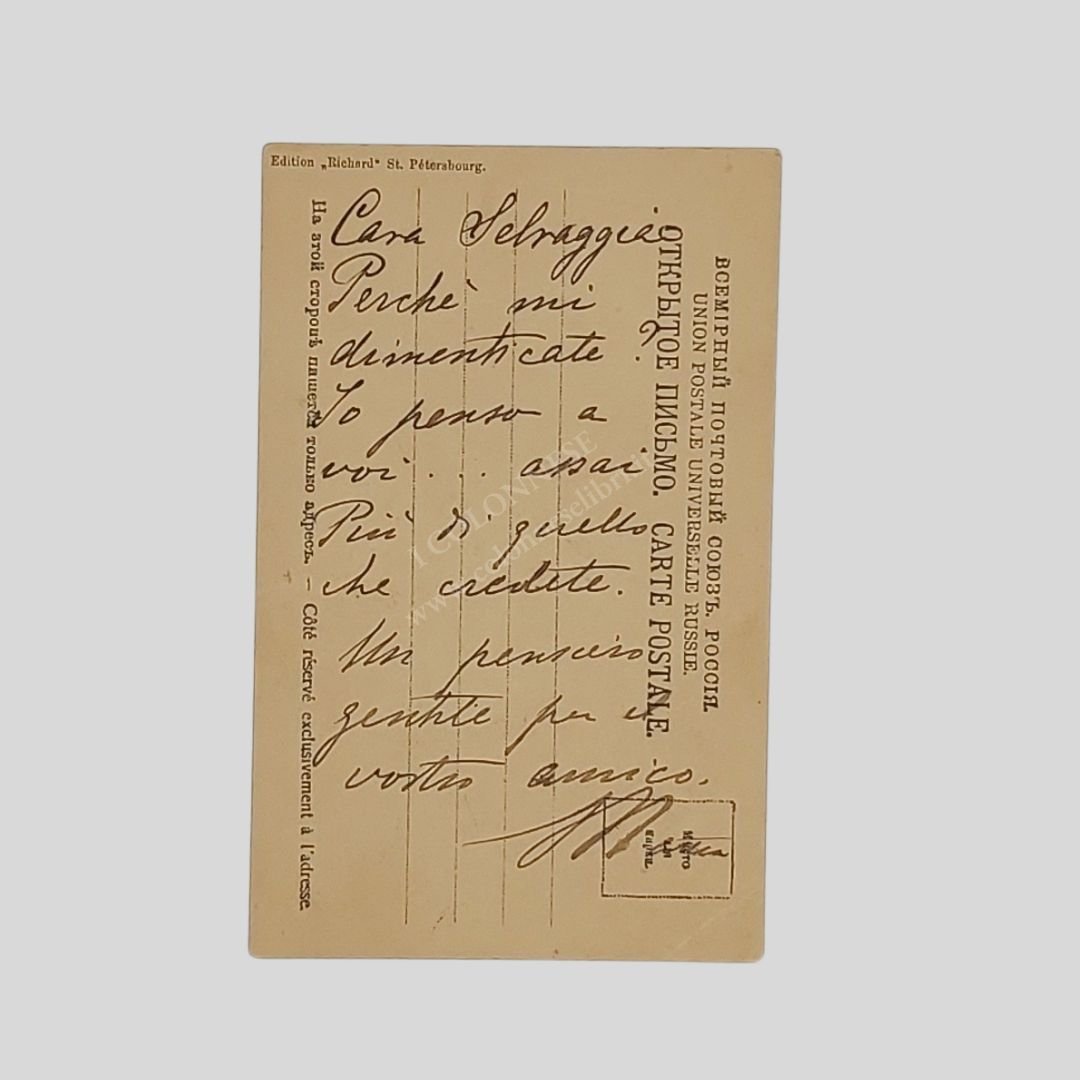 Edition „Richard“ St. Pétersbourg.
Cara Selvaggia
Perchè mi
dimenticate ?
Io penso a
voi . . . assai
Più di quello
che credete.
Un pensiero
gentile per il
vostro amico.
ВСЕМІРНЫЙ ПОЧТОВЫЙ СОЮЗЪ. РОССІЯ.
UNION POSTALE UNIVERSELLE RUSSIE.
ОТКРЫТОЕ ПИСЬМО. CARTE POSTALE.
На этой сторонѣ пишется только адресъ. — Côté réservé exclusivement à l'adresse.
Мѣсто
для
марки.
I COLONNESE